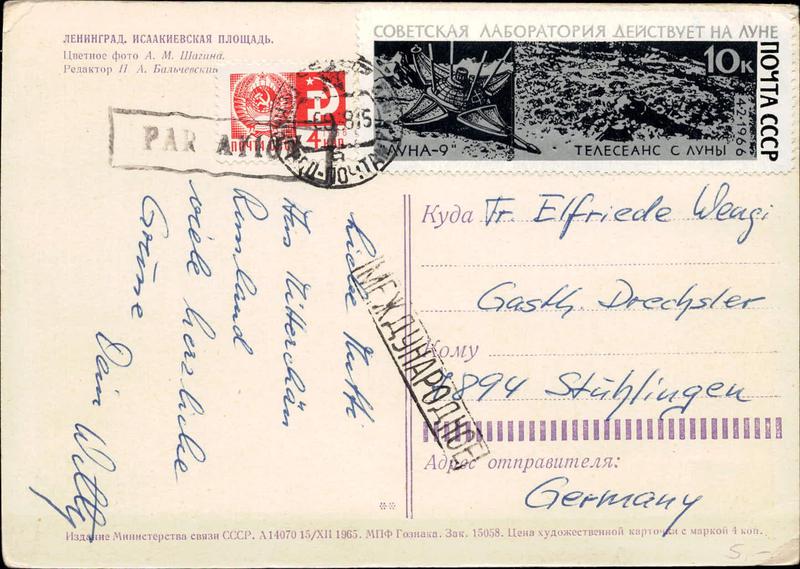 ЛЕНИНГРАД. ИСААКИЕВСКАЯ ПЛОЩАДЬ.
Цветное фото А. М. Шагина.
Редактор П. А. Бальчевский
СОВЕТСКАЯ ЛАБОРАТОРИЯ ДЕЙСТВУЕТ НА ЛУНЕ
10к
ПОЧТА СССР
4-2-1966
ЛУНА-9"
ТЕЛЕСЕАНС С ЛУНЫ
ПОЧТА
4
PAR AVION
МЕЖДУНАРОДНОЕ
Mutti
Aus
Russland
viele herzliche
Grüsse
Dein Willy
Куда Fr. Elfriede
Gasth. Drechsler
Кому
7894 Stühlingen
Адрес отправителя:
Germany
Издание Министерства связи СССР. А14070 15/XII 1965. МПФ Гознака. Зак. 15058. Цена художественной карточки с маркой 4 коп.
5.-